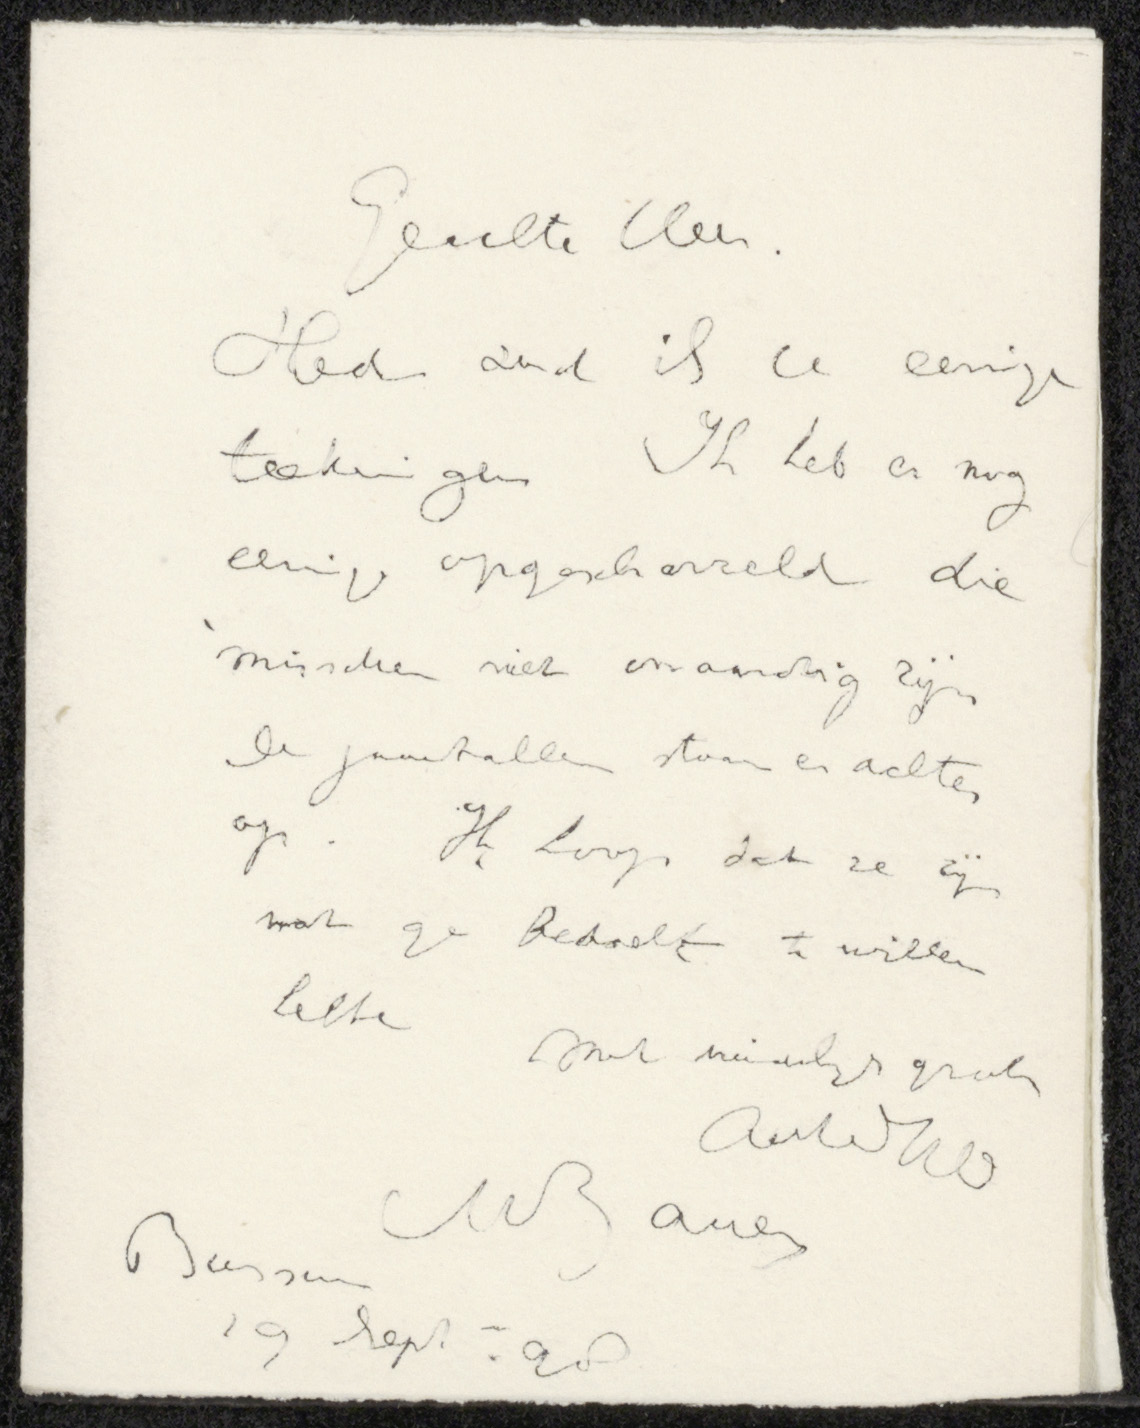 Geachte Heer.
Heden zend ik u eenige
teekeningen Ik heb er nog
eenige opgescharreld die
misschien niet onaardig zijn
De jaartallen staan er achter
op. Ik hoop dat ze zijn
wat ge bedoelt te willen
hebben
Met vriendelijke groeten
MBauer
Bussum
19 Sept = 98